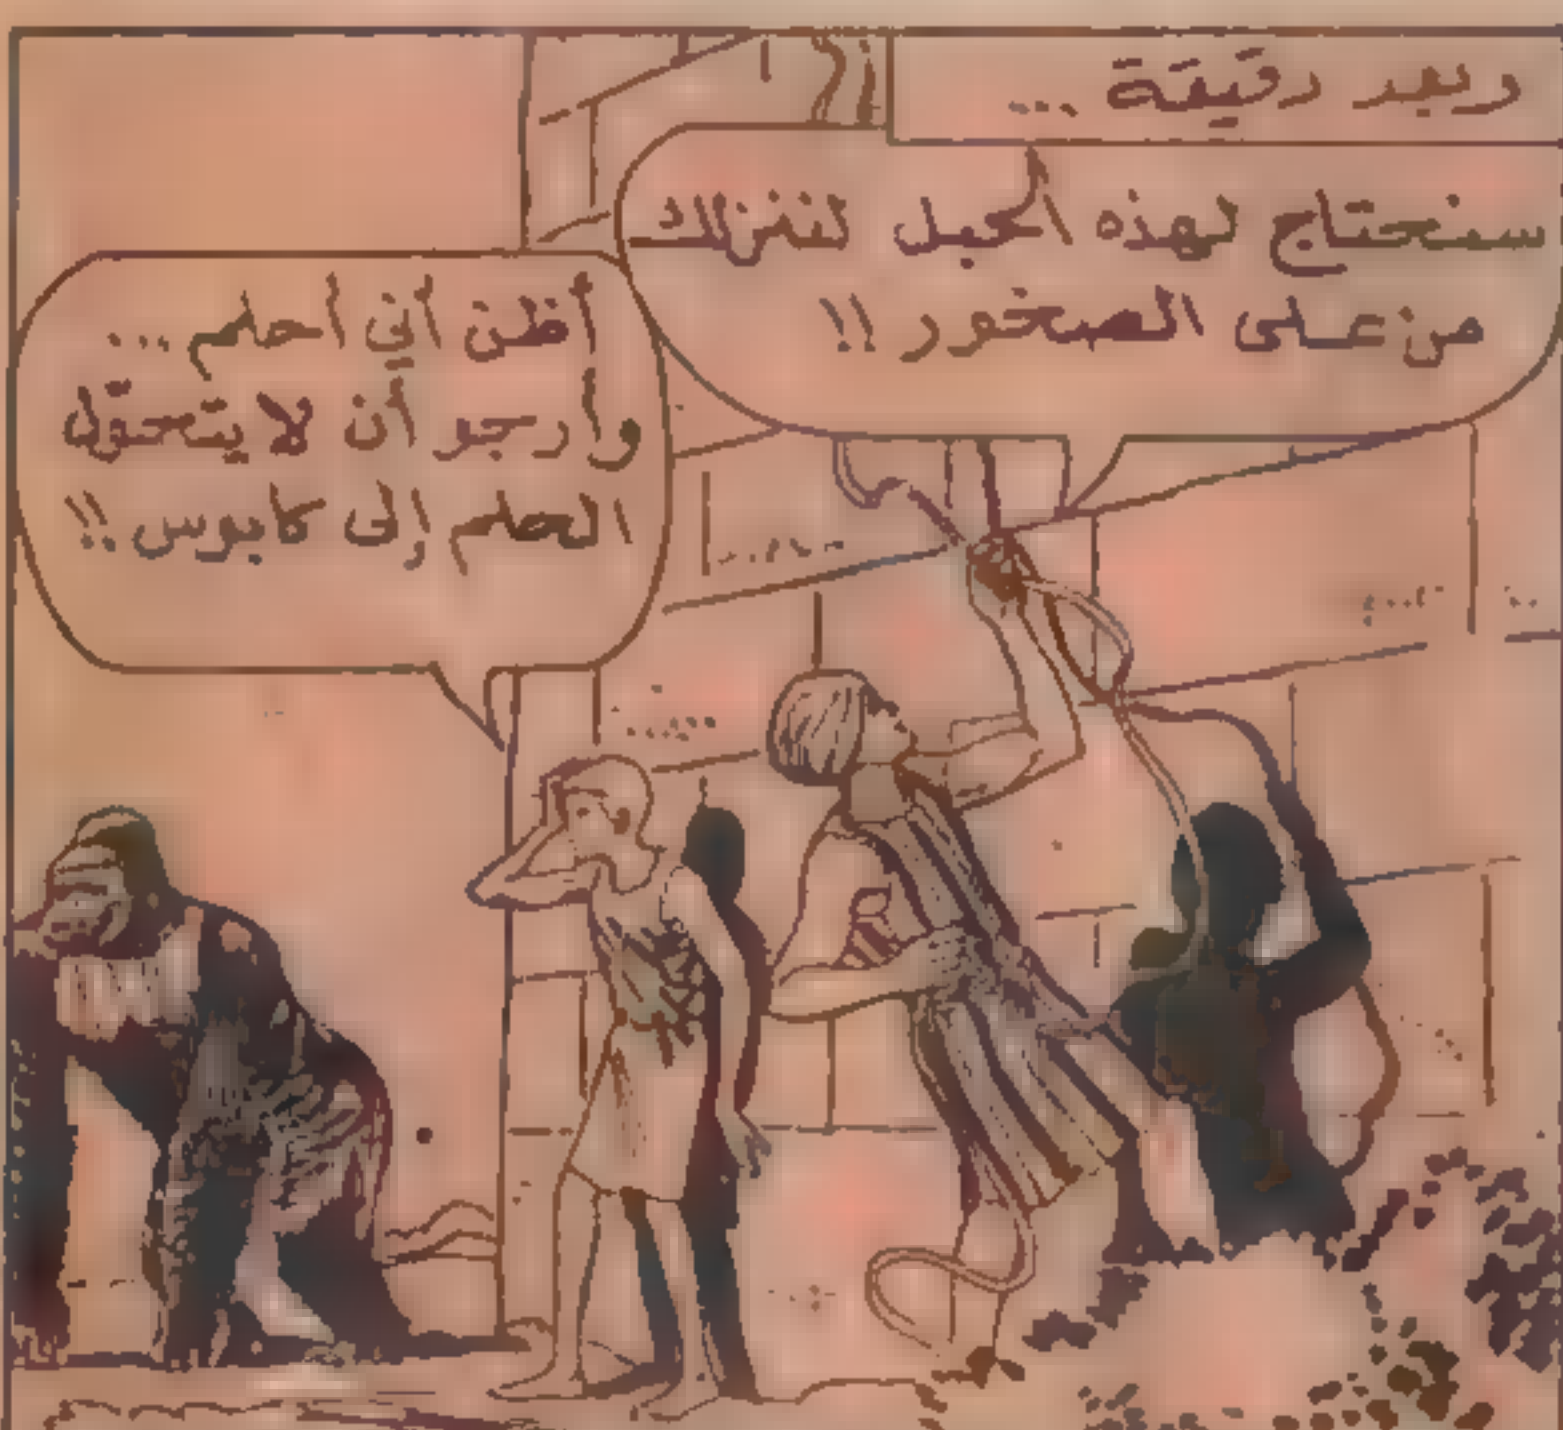 وبعد دقيقة ...
سنحتاج لهذه الحبل لننزلك
من على الصخور !!
أظن أني أحلم ...
وأرجو أن لا يتحوّل
الحلم إلى كابوس !!